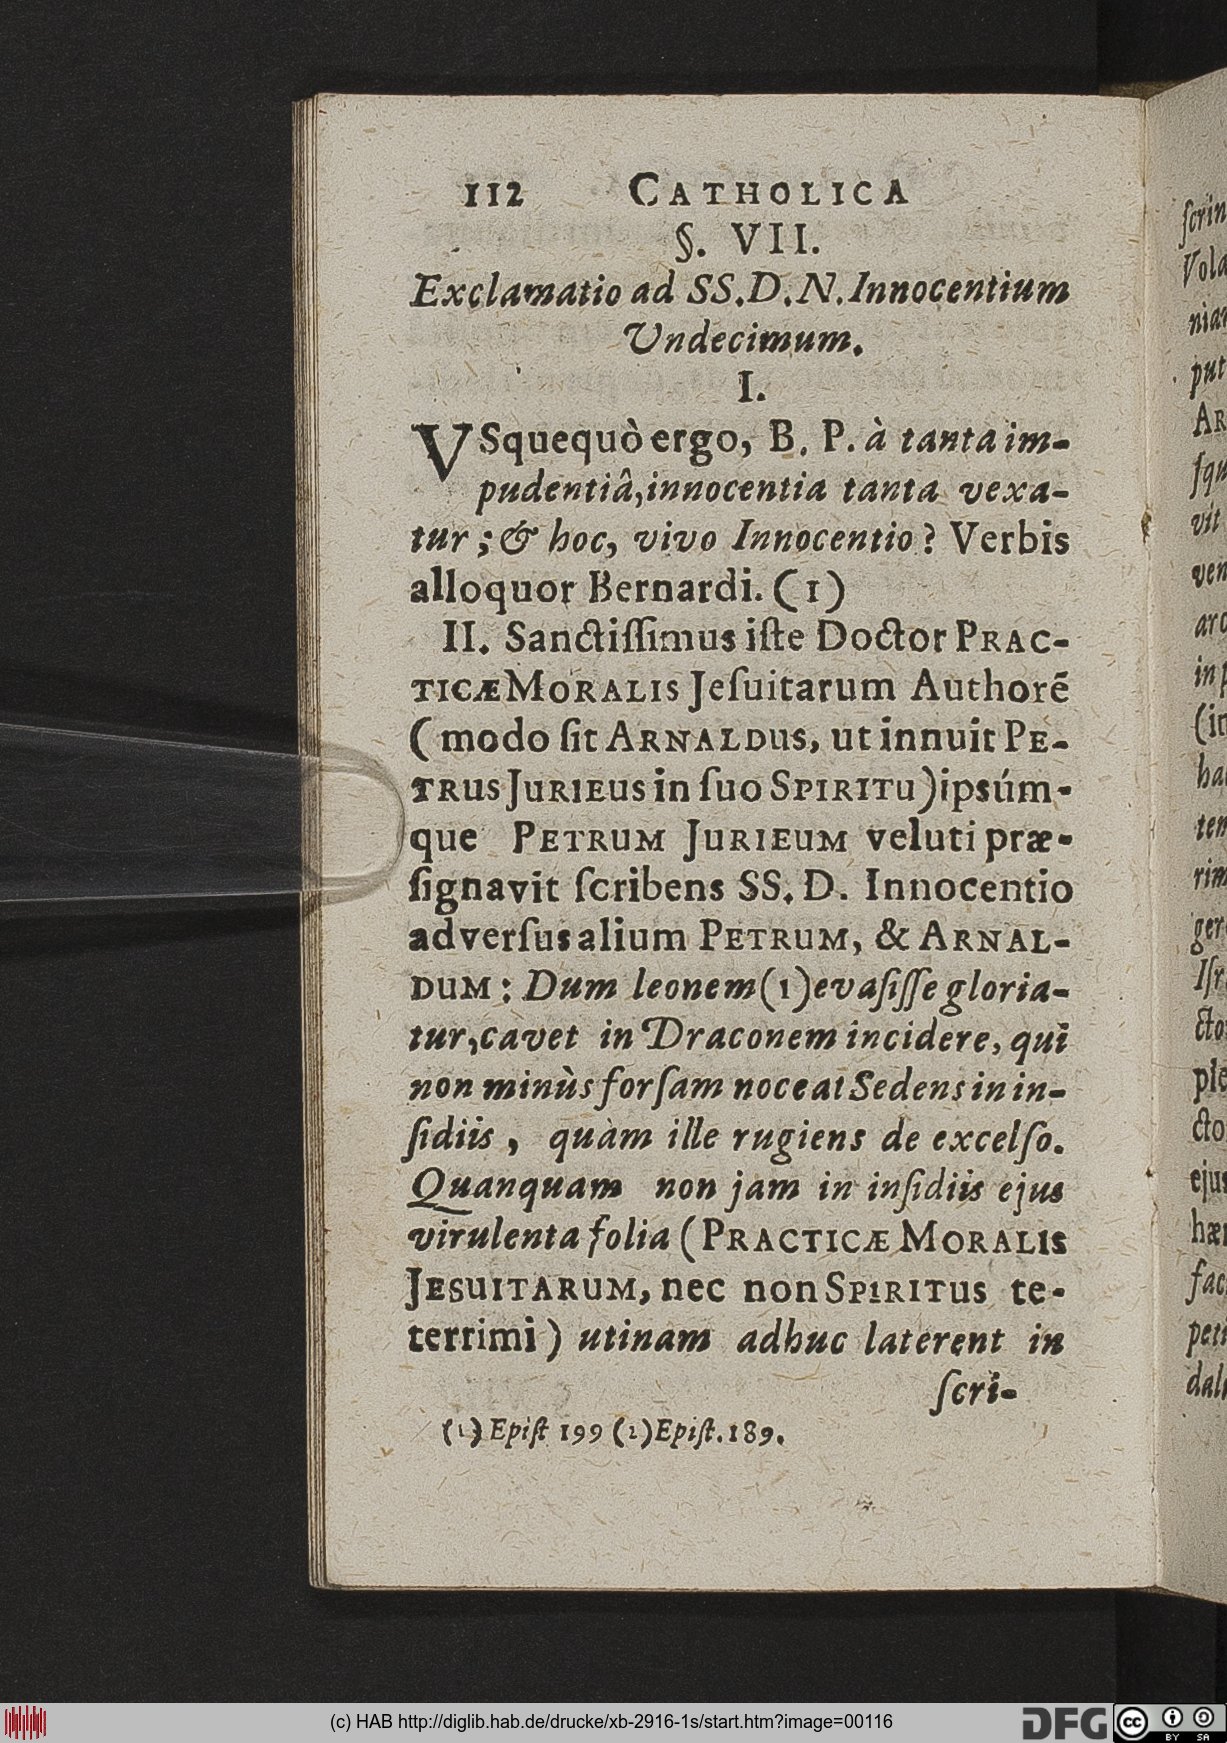 112 CATHOLICA
§. VII.
Exclamatio ad SS.D.N.Innocentium
Undecimum.
I.
VSquequò ergo, B. P. à tanta im-
pudentiâ,innocentia tanta vexa-
tur ; & hoc, vivo Innocentio? Verbis
alloquor Bernardi. (1)
II. Sanctiſſimus iſte Doctor PRAC-
TICÆ MORALIS Jeſuitarum Authorē
( modo ſit ARNALDUS, ut innuit PE-
TRUS JURIEUS in ſuo SPIRITU)ipsúm-
que PETRUM JURIEUM veluti præ-
ſignavit ſcribens SS. D. Innocentio
adverſus alium PETRUM, & ARNAL-
DUM : Dum leonem(1)evaſiſſe gloria-
tur,cavet in Draconem incidere, qui
non minùs forſam noceat Sedens in in-
ſidiis , quàm ille rugiens de excelſo.
Quanquam non jam in inſidiis ejus
virulenta folia (PRACTICÆ MORALIS
JESUITARUM, nec non SPIRITUS te-
terrimi) utinam adhuc laterent in
ſcri-
(1) Epiſt 199 (2)Epiſt.189.
ſcrin
Vola
nian
put
AR
ſqu
vit
ven
arc
in p
(in
ha
ten
rim
ger
Iſr
cto
ple
cto
ejus
hær
fac
peti
dal
(c) HAB http://diglib.hab.de/drucke/xb-2916-1s/start.htm?image=00116
DFG
cc
BY SA